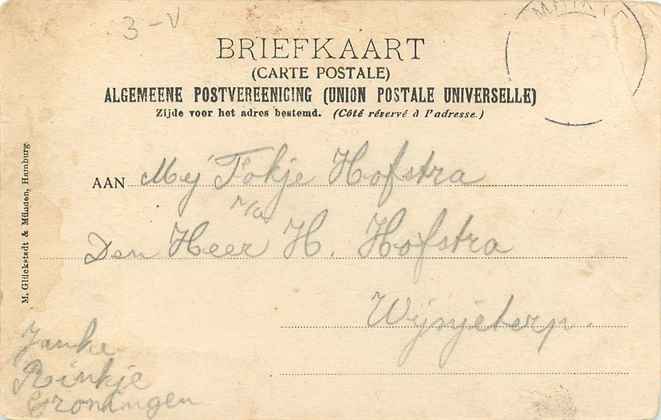 3-V
BRIEFKAART
(CARTE POSTALE)
ALGEMEENE POSTVEREENIGING (UNION POSTALE UNIVERSELLE)
Zijde voor het adres bestemd. (Côté réservé à l'adresse.)
AAN Mej Fokje Hofstra
p/a
Den Heer H. Hofstra
Wijnjeterp.
Janke
Rinkje
Groningen
M. Glückstadt & Münden, Hamburg.